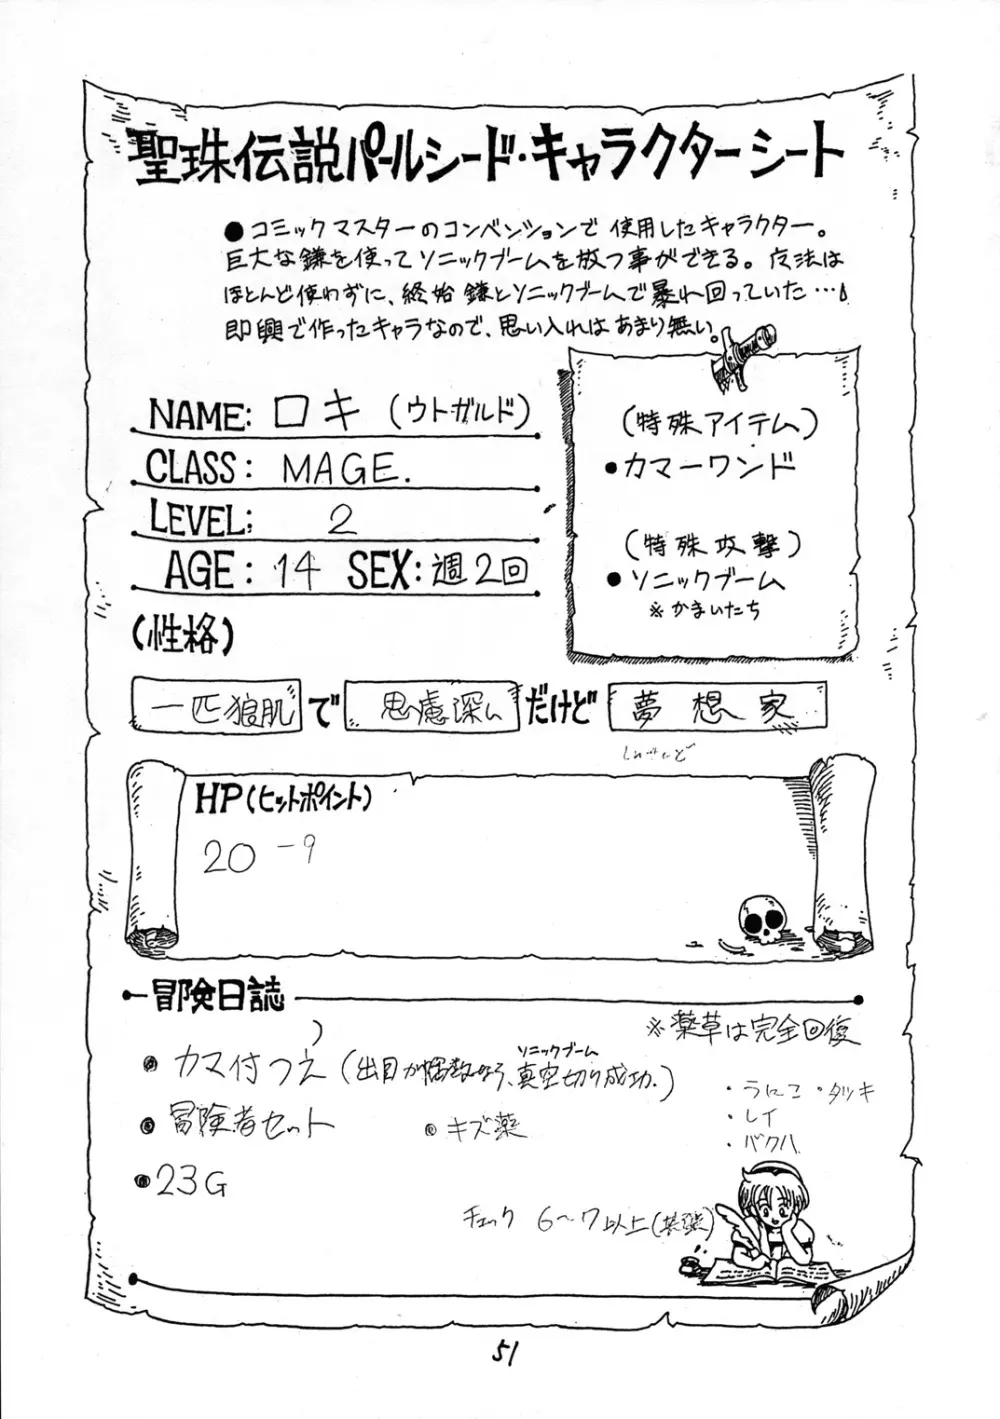 聖珠伝説パールシード・キャラクターシート
●コミックマスターのコンベンションで使用したキャラクター。
巨大な鎌を使ってソニックブームを放つ事ができる。魔法は
ほとんど使わずに、終始鎌とソニックブームで暴れ回っていた…
即興で作ったキャラなので、思い入れはあまり無い。
NAME: ロキ (ウトガルド)
CLASS: MAGE.
LEVEL: 2
AGE: 14 SEX: 週2回
(特殊アイテム)
●カマーワンド
(特殊攻撃)
●ソニックブーム
※かまいたち
(性格)
一匹狼肌 で 思慮深い だけど 夢想家
HP(ヒットポイント)
20 -9
冒険日誌
※薬草は完全回復
ソニックブーム
●カマ付つえ (出目が偶数なら、真空切り成功.)
●冒険者セット ●キズ薬
●23G
・うにこ ・タツキ
・レイ
・バクハ
チェック 6〜7以上
51